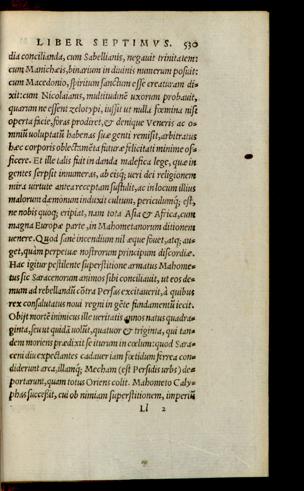 LIBER SEPTIMVS. 530
dia concilianda, cum Sabellianis, negauit trinitatem:
cum Manichæis, binarium in diuinis numerum posuit:
cum Macedonio, spiritum sanctum esse creaturam di-
xit: cum Nicolaianis, multitudinē uxorum probauit,
quarum ne essent zelotypi, iussit ut nulla fœmina nisi
operta facie, foras prodiret, & denique Veneris ac o-
mniū uoluptatū habenas suæ genti remisit, arbitratus
hæc corporis oblectamēta futuræ felicitati minime of-
ficere. Et ille talis fuit in danda malefica lege, quæ in
gentes serpsit innumeras, ab eisq; ueri dei religionem
mira uirtute antea receptam sustulit, ac in locum illius
malorum dæmonum induxit cultum, periculumq; est,
ne nobis quoq; eripiat, nam tota Asia & Africa, cum
magna Europæ parte, in Mahometanorum ditionem
uenere. Quod sane incendium nil æque fouet, atq; au-
get, quàm perpetuæ nostrorum principum discordiæ.
Hac igitur pestilente superstitione armatus Mahome-
tus sic Saracenorum animos sibi conciliauit, ut eos de-
mum ad rebellandū cōtra Persas excitauerit, à quibus
rex consalutatus noui regni in gēte fundamentū iecit.
Obijt morte inimicus ille ueritatis annos natus quadra-
ginta, seu ut quidā uolūt, quatuor & triginta, qui tan-
dem moriens prædixit se iturum in cœlum: quod Sara-
ceni diu expectantes cadauer iam fœtidum ferrea con-
diderunt arca, illamq; Mecham (est Persidis urbs) de-
portarunt, quam totus Oriens colit. Mahometo Caly-
phas successit, cui ob nimiam superstitionem, imperiū
Ll 2